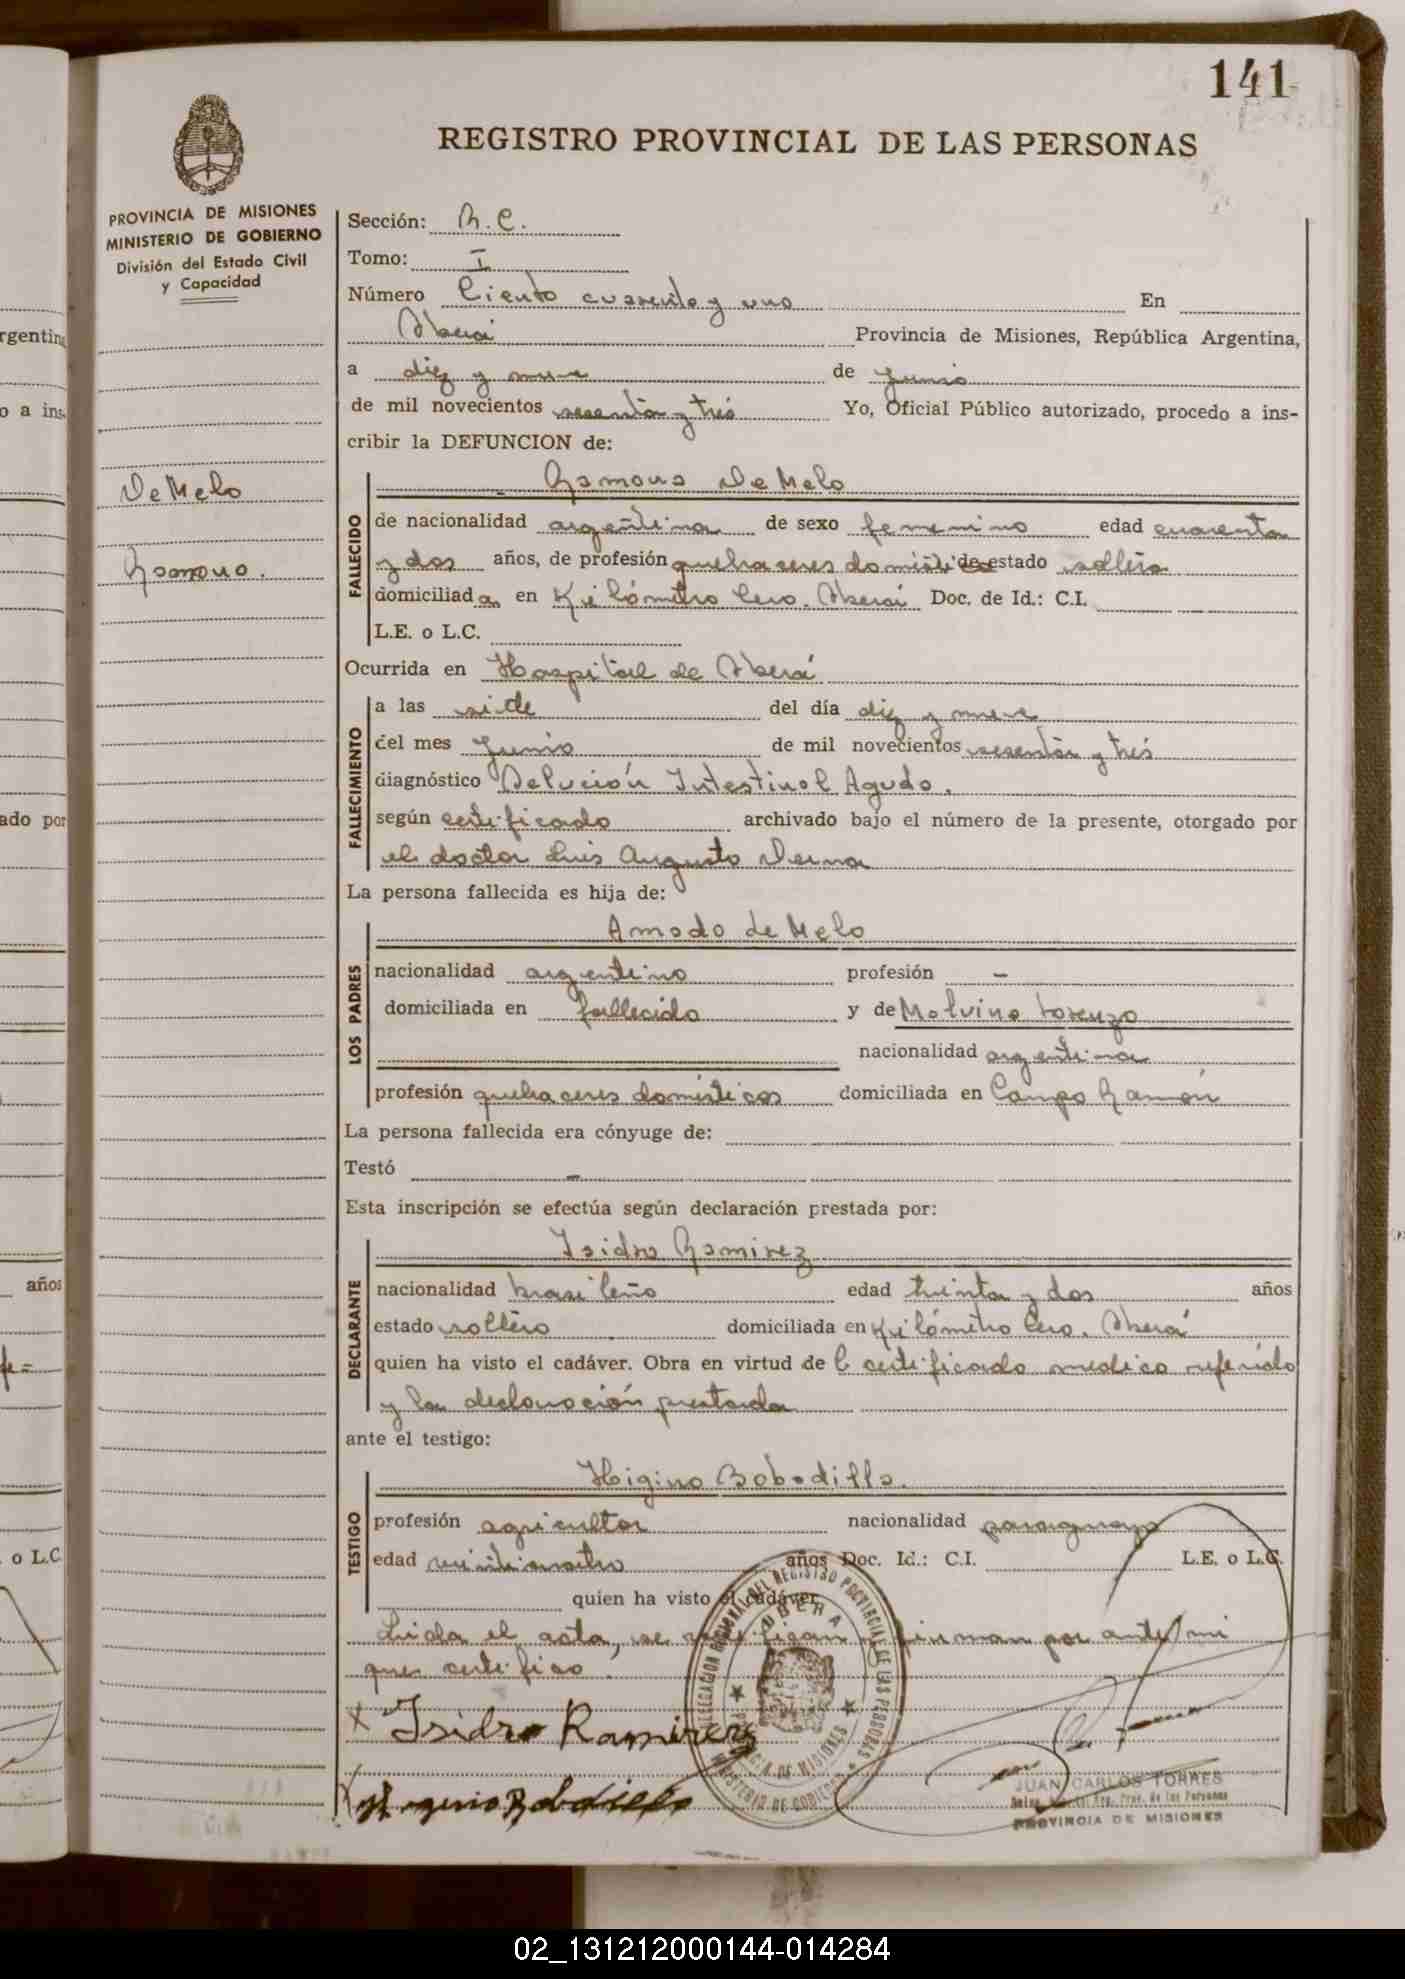 141
REGISTRO PROVINCIAL DE LAS PERSONAS
PROVINCIA DE MISIONES
MINISTERIO DE GOBIERNO
División del Estado Civil
y Capacidad
De Melo
Ramona.
Sección: R.C.
Tomo: I
Número Ciento cuarenta y uno En
Oberá Provincia de Misiones, República Argentina,
a diez y nueve de Junio
de mil novecientos sesenta y tres Yo, Oficial Público autorizado, procedo a ins-
cribir la DEFUNCION de:
Ramona De Melo
FALLECIDO
de nacionalidad argentina de sexo femenino edad cuarenta
y dos años, de profesión quehaceres domésti de estado soltera
domiciliada en Kilómetro Cero. Oberá Doc. de Id.: C.I.
L.E. o L.C.
Ocurrida en Hospital de Oberá
FALLECIMIENTO
a las siete del día diez y nueve
del mes Junio de mil novecientos sesenta y tres
diagnóstico Intestinal Aguda.
según certificado archivado bajo el número de la presente, otorgado por
el doctor Luis Augusto Derna
La persona fallecida es hija de:
Amado de Melo
LOS PADRES
nacionalidad argentino profesión -
domiciliada en fallecido y de Malvina Lorenzo
nacionalidad argentina
profesión quehaceres domésticos domiciliada en Campo Ramón
La persona fallecida era cónyuge de:
Testó -
Esta inscripción se efectúa según declaración prestada por:
Isidro Ramirez
DECLARANTE
nacionalidad brasileño edad treinta y dos años
estado soltero domiciliada en Kilómetro Cero. Oberá
quien ha visto el cadáver. Obra en virtud de l certificado medico referido
y la declaración prestada
ante el testigo:
Higino Bobadilla.
TESTIGO
profesión agricultor nacionalidad paraguayo
edad veinticuatro años Doc. Id.: C.I. L.E. o L.C.
quien ha visto el cadáver
Leida el acta, se ratifican y firman por ante mi
que certifico.
x Isidro Ramirez
x Higinio Bobadilla
DELEGACION REGIONAL DEL REGISTRO PROVINCIAL DE LAS PERSONAS
OBERA
PROVINCIA DE MISIONES
MINISTERIO DE GOBIERNO
JUAN CARLOS TORRES
Reg. Prov. de las Personas
PROVINCIA DE MISIONES
rgentina
o a ins-
ado por
años
o L.C
02_131212000144-014284